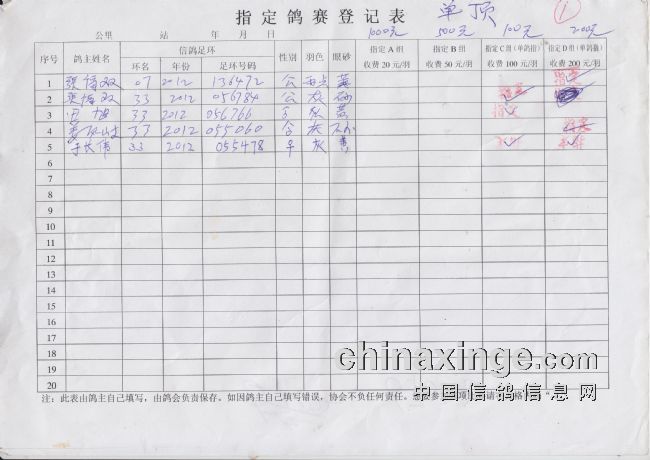 指定鸽赛登记表 单顶 ①
1000元 500元 100元 200元
公里 站 年 月 日
序号 鸽主姓名 信鸽足环 性别 羽色 眼砂 指定A组 指定B组 指定C组(单鸽指) 指定D组(单鸽指)
环名 年份 足环号码 收费20元/羽 收费50元/羽 收费100元/羽 收费200元/羽
1 07 2012 136472 公 黄 指定
2 33 2012 056984 公 灰 砂 指定
3 33 2012 056766 灰 黄 指定
4 33 2012 055060 灰 指定
5 于长伟 33 2012 055478 灰 黄
6
7
8
9
10
11
12
13
14
15
16
17
18
19
20
chinaxinge.com
中国信鸽信息网
注：此表由鸽主自己填写，由鸽会负责保存。如因鸽主自己填写错误，协会不负任何责任。